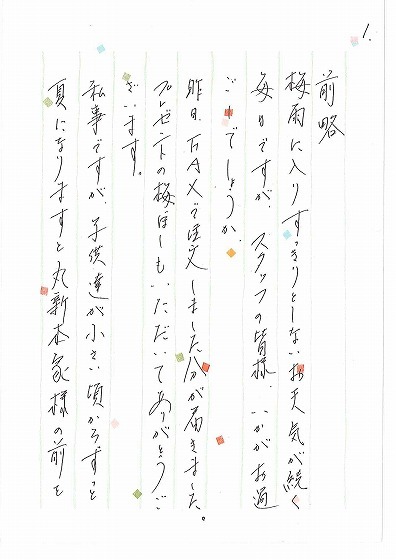 1.
前略
梅雨に入りすっきりとしないお天気が続く
毎日ですが、スタッフの皆様、いかがお過
ごしでしょうか。
昨日、FAXで注文しました分が届きました。
プレゼントの梅ぼしもいただいてありがとうご
ざいます。
私事ですが、子供達が小さい頃からずっと
夏になりますと丸新本家様の前を